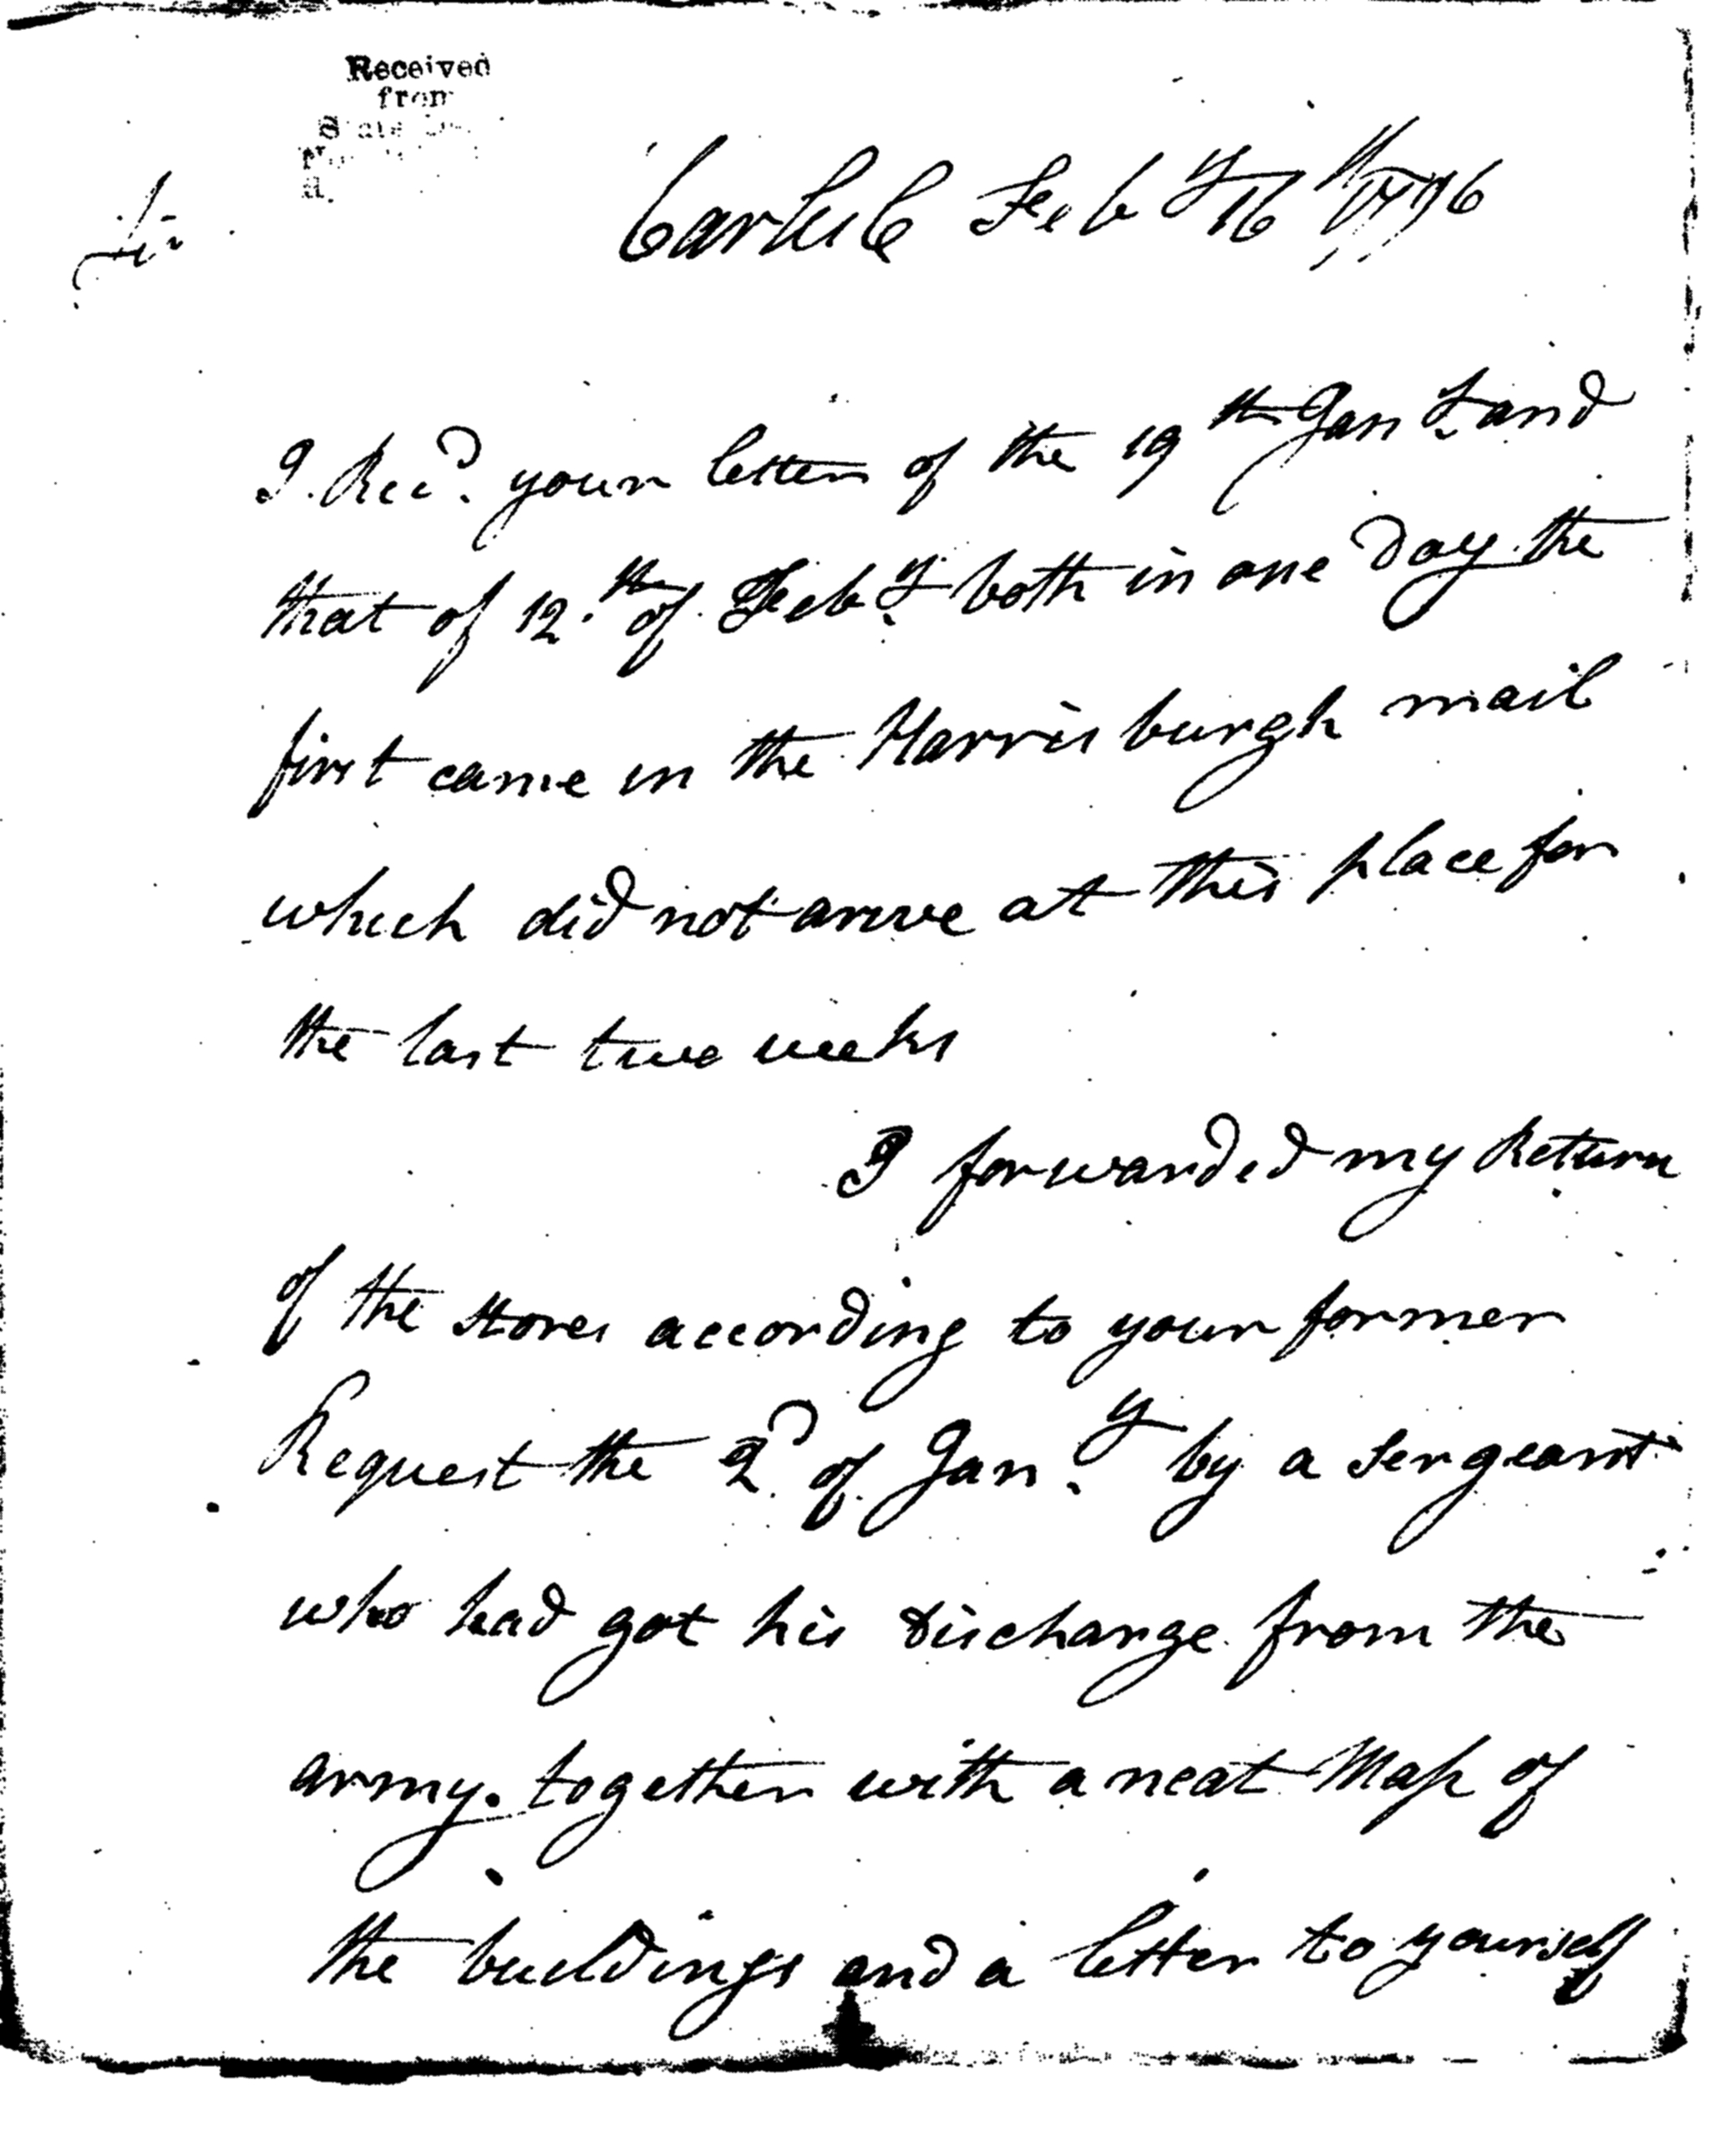 Received
from
State
Sir
Carlisle Feby 16th 1796
I Recd. your letter of the 19th Jany and
that of 12.th of Feby both in one Day the
first came in the Harrisburgh mail
which did not arive at this place for
the last two weeks
I forwarded my Return
of the stores according to your former
Request the 2d. of Jany by a sergeant
who had got his Discharge from the
army. together with a neat Map of
the buildings and a letter to yourself